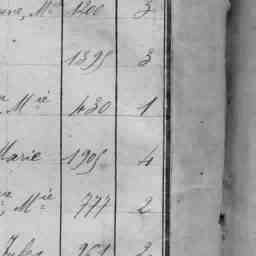 Mie 1200 3
1395 3
Mie 430 1
Marie 1905 4
Mie 777 2
Jules 961 2